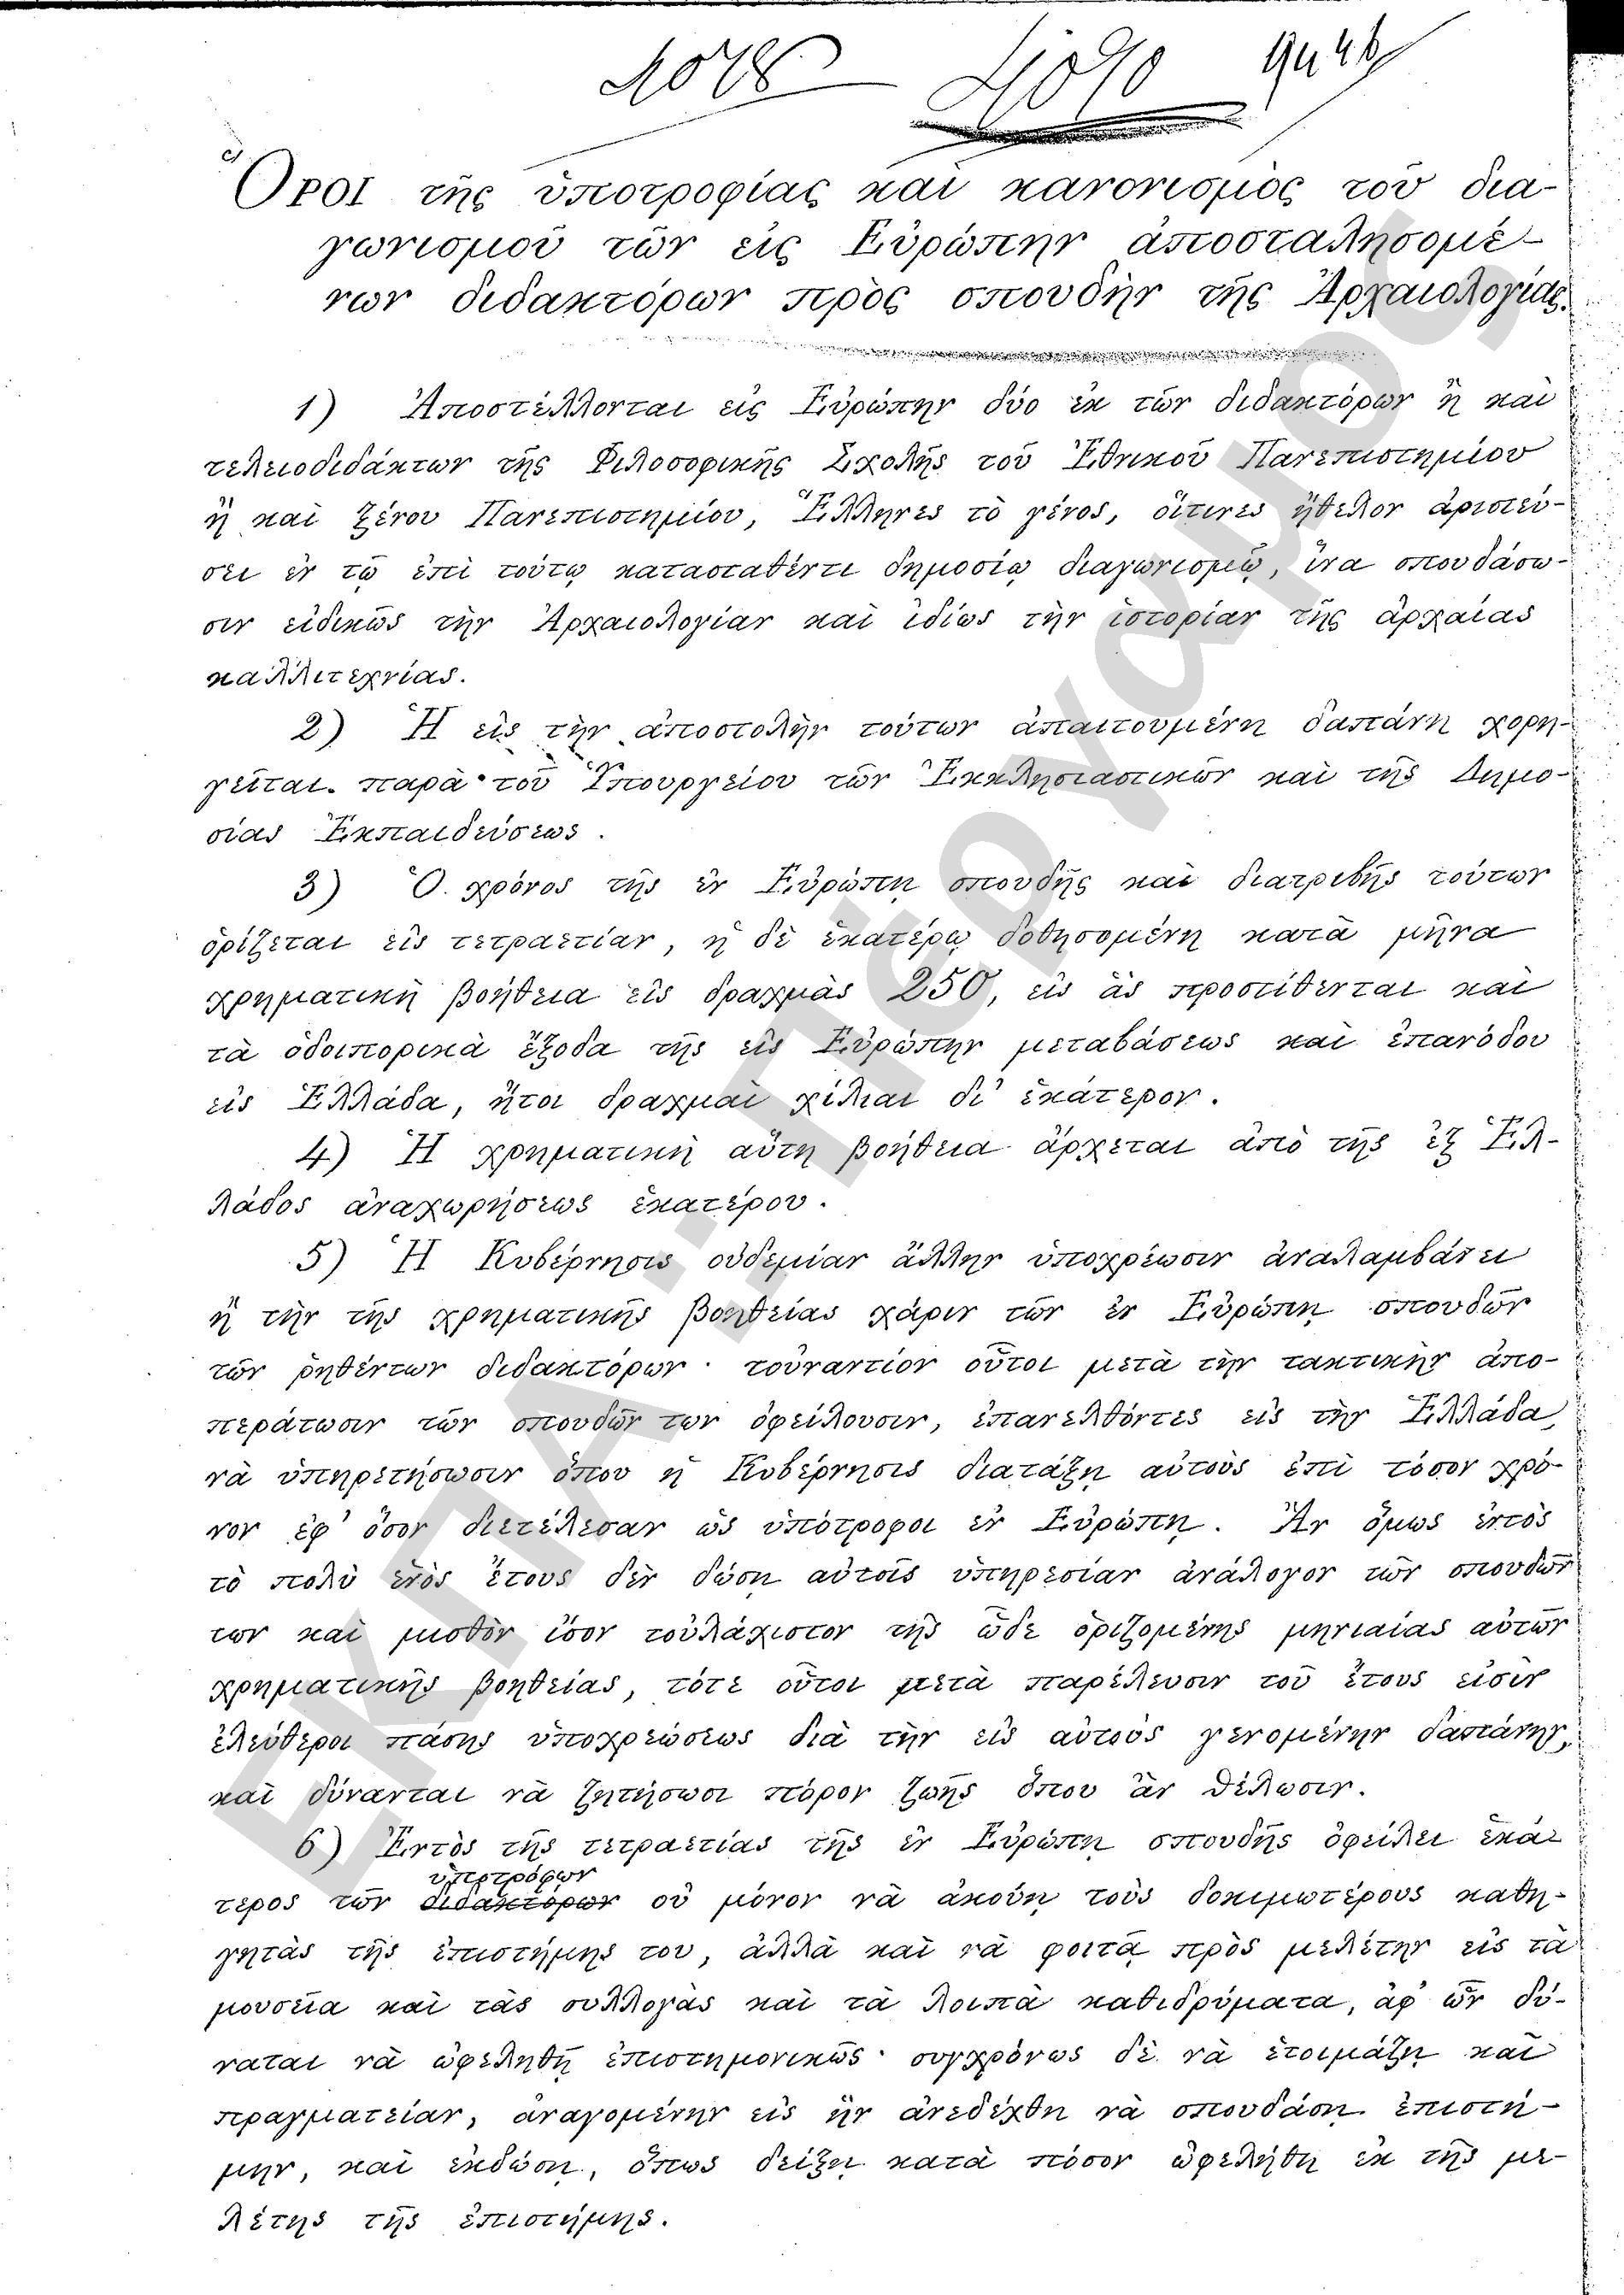 Ὅροι τῆς ὑποτροφίας καὶ κανονισμὸς τοῦ δια-
γωνισμοῦ τῶν εἰς Εὐρώπην ἀποσταλησομέ-
νων διδακτόρων πρὸς σπουδὴν τῆς Ἀρχαιολογίας.
1) Ἀποστέλλονται εἰς Εὐρώπην δύο ἐκ τῶν διδακτόρων ἢ καὶ
τελειοδιδάκτων τῆς Φιλοσοφικῆς Σχολῆς τοῦ Ἐθνικοῦ Πανεπιστημίου
ἢ καὶ ξένου Πανεπιστημίου, Ἕλληνες τὸ γένος, οἵτινες ἤθελον ἀριστεύ-
σει ἐν τῷ ἐπὶ τούτῳ κατασταθέντι δημοσίῳ διαγωνισμῷ, ἵνα σπουδάσω-
σιν εἰδικῶς τὴν Ἀρχαιολογίαν καὶ ἰδίως τὴν ἱστορίαν τῆς ἀρχαίας
καλλιτεχνίας.
2) Ἡ εἰς τὴν ἀποστολὴν τούτων ἀπαιτουμένη δαπάνη χορη-
γεῖται παρὰ τοῦ Ὑπουργείου τῶν Ἐκκλησιαστικῶν καὶ τῆς Δημο-
σίας Ἐκπαιδεύσεως.
3) Ὁ χρόνος τῆς ἐν Εὐρώπῃ σπουδῆς καὶ διατριβῆς τούτων
ὁρίζεται εἰς τετραετίαν, ἡ δὲ ἑκατέρῳ δοθησομένη κατὰ μῆνα
χρηματικὴ βοήθεια εἰς δραχμὰς 250, εἰς ἃς προστίθενται καὶ
τὰ ὁδοιπορικὰ ἔξοδα τῆς εἰς Εὐρώπην μεταβάσεως καὶ ἐπανόδου
εἰς Ἑλλάδα, ἤτοι δραχμαὶ χίλιαι δι' ἑκάτερον.
4) Ἡ χρηματικὴ αὕτη βοήθεια ἄρχεται ἀπὸ τῆς ἐξ Ἑλ-
λάδος ἀναχωρήσεως ἑκατέρου.
5) Ἡ Κυβέρνησις οὐδεμίαν ἄλλην ὑποχρέωσιν ἀναλαμβάνει
ἢ τὴν τῆς χρηματικῆς βοηθείας χάριν τῶν ἐν Εὐρώπῃ σπουδῶν
τῶν ῥηθέντων διδακτόρων· τοὐναντίον οὗτοι μετὰ τὴν τακτικὴν ἀπο-
περάτωσιν τῶν σπουδῶν των ὀφείλουσιν, ἐπανελθόντες εἰς τὴν Ἑλλάδα,
νὰ ὑπηρετήσωσιν ὅπου ἡ Κυβέρνησις διατάξῃ αὐτοὺς ἐπὶ τόσον χρό-
νον ἐφ' ὅσον διετέλεσαν ὡς ὑπότροφοι ἐν Εὐρώπῃ. Ἂν ὅμως ἐντὸς
τὸ πολὺ ἑνὸς ἔτους δὲν δώσῃ αὐτοῖς ὑπηρεσίαν ἀνάλογον τῶν σπουδῶν
των καὶ μισθὸν ἴσον τοὐλάχιστον τῆς ὧδε ὁριζομένης μηνιαίας αὐτῶν
χρηματικῆς βοηθείας, τότε οὗτοι μετὰ παρέλευσιν τοῦ ἔτους εἰσὶν
ἐλεύθεροι πάσης ὑποχρεώσεως διὰ τὴν εἰς αὐτοὺς γενομένην δαπάνην,
καὶ δύνανται νὰ ζητήσωσι πόρον ζωῆς ὅπου ἂν θέλωσιν.
6) Ἐντὸς τῆς τετραετίας τῆς ἐν Εὐρώπῃ σπουδῆς ὀφείλει ἑκά-
ὑποτρόφων
τερος τῶν διδακτόρων οὐ μόνον νὰ ἀκούῃ τοὺς δοκιμωτέρους καθη-
γητὰς τῆς ἐπιστήμης του, ἀλλὰ καὶ νὰ φοιτᾷ πρὸς μελέτην εἰς τὰ
μουσεῖα καὶ τὰς συλλογὰς καὶ τὰ λοιπὰ καθιδρύματα, ἀφ' ὧν δύ-
ναται νὰ ὠφεληθῇ ἐπιστημονικῶς· συγχρόνως δὲ νὰ ἑτοιμάζῃ καὶ
πραγματείαν, ἀναγομένην εἰς ἣν ἀνεδέχθη νὰ σπουδάσῃ ἐπιστή-
μην, καὶ ἐκδώσῃ, ὅπως δείξῃ κατὰ πόσον ὠφελήθη ἐκ τῆς με-
λέτης τῆς ἐπιστήμης.